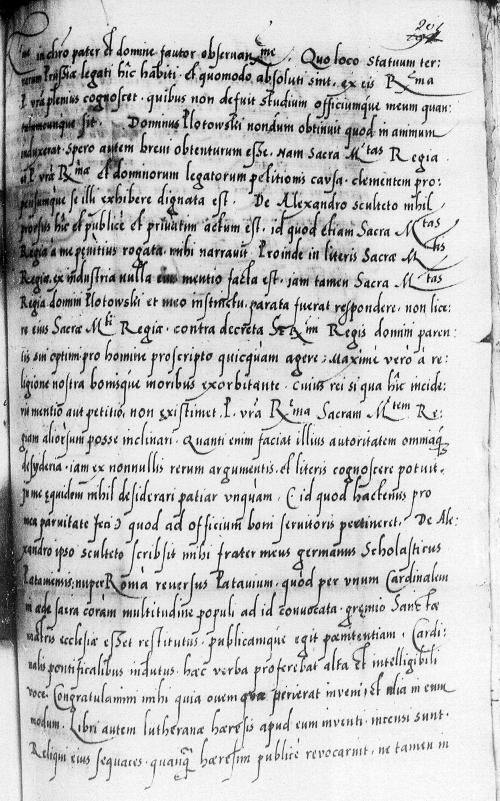 in chro pater et domine fautor observan me. Quo loco statuum ter:
rarum Prussiæ legati hîc habiti et quomodo absoluti sint, ex eis R ma
P. vra plenius cognoscet. quibus non defuit studium officiumque meum quan:
tulumcunque sit. Dominus Plotowski nondum obtinuit quod in animum
induxerat. spero autem brevi obtenturum esse. nam Sacra M tas Regia
P. vræ R ma et domnorum legatorum petitionis causa. clementem pro:
pensumque se illi exhibere dignata est. De Alexandro sculteto nihil
prorsus hîc et publicè et privatim actum est. id quod etiam Sacra M tas
Regia a me penitius rogata. mihi narravit. Proinde in literis Sacræ M tis
Regiæ. ex industria nulla eius mentio facta est. jam tamen Sacra M tas
Regia domini Plotowski et meo instinctu. parata fuerat respondere. non lice:
re eius Sacræ M ti Regiæ. contra decreta S R im Regis domini paren:
tis sui optimi pro homine proscripto quicquam agere; Maximè verò à re:
ligione nostra bonisque moribus exorbitante. cuius rei si qua hîc incide:
rit mentio aut petitio, non existimet P. vra R ma Sacram M tem Re:
giam aliorsum posse inclinari. Quanti enim faciat illius autoritatem omniaq
desyderia. iam ex nonnullis rerum argumentis. et literis cognoscere potuit.
per me equidem nihil desiderari patiar unquam. (id quod hactenus pro
mea parvitate feci) quod ad officium boni servitoris pertineret. De Ale:
xandro ipso sculteto scribsit mihi frater meus germanus Scholasticus
Patavensis; nuper Româ reversus Patavium. quòd per unum Cardinalem
in æde sacra coram multitudine populi ad id convocata. gremio Sanctæ
matris ecclesiæ esset restitutus. publicamque egit pœnitentiam. Cardi:
nalis pontificalibus indutus. hæc verba proferebat alta et intelligibili
voce. Congratulamini mihi quia ovem quæ perierat inveni, et alia in eum
modum. Libri autem lutheranæ hæresis apud eum inventi. incensi sunt.
Reliqui eius sequaces. quanq hæresim publicè revocarint. ne tamen in